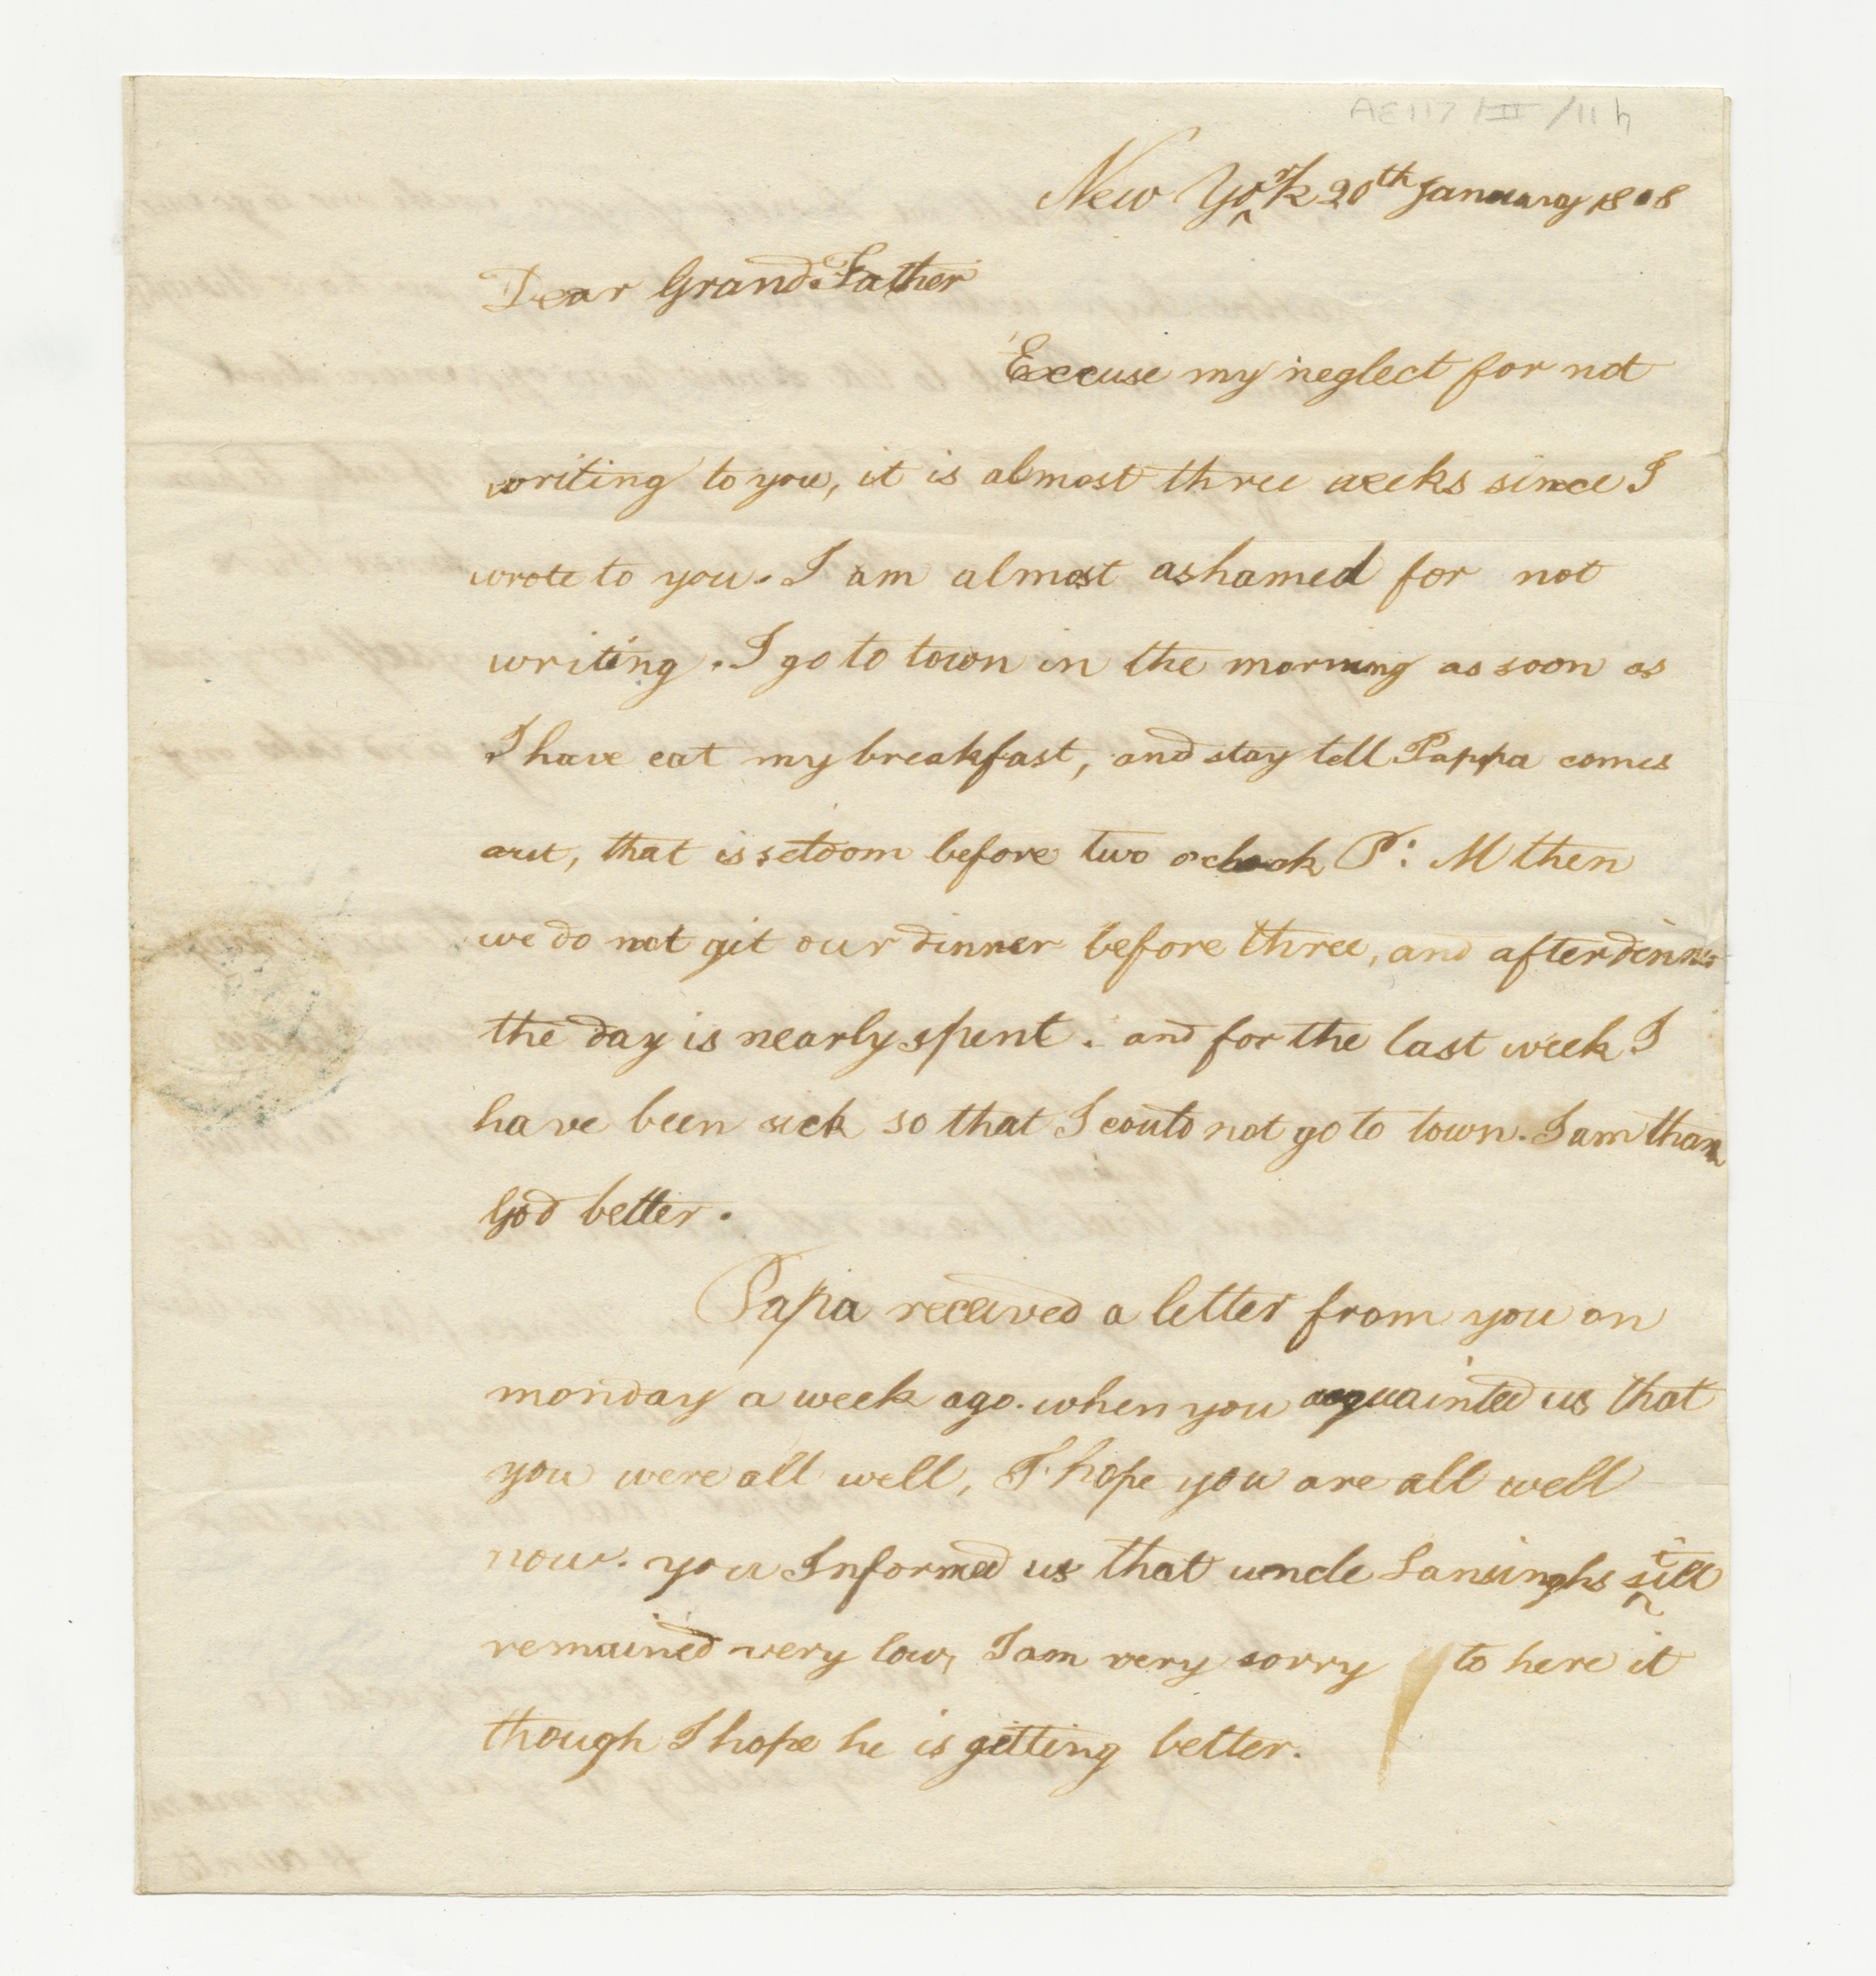 AE117/II/11h
New York 20th January 1808
Dear Grand.Father
Excuse my neglect for not
writing to you, it is almost three weeks since I
wrote to you. I am almost ashamed for not
writing. I go to town in the morning as soon as
I have eat my breakfast, and stay tell Pappa comes
out, that is seldom before two oclock P: M then
we do not git our dinner before three, and after dinner
the day is nearly spent. and for the last week I
have been sick so that I could not go to town. I am thank
God better.
Papa received a letter from you on
monday a week ago. when you acquainted us that
you were all well, I hope you are all well
now. you Informed us that uncle Lansinghs still
remained very low, I am very sorry to here it
though I hope he is getting better.